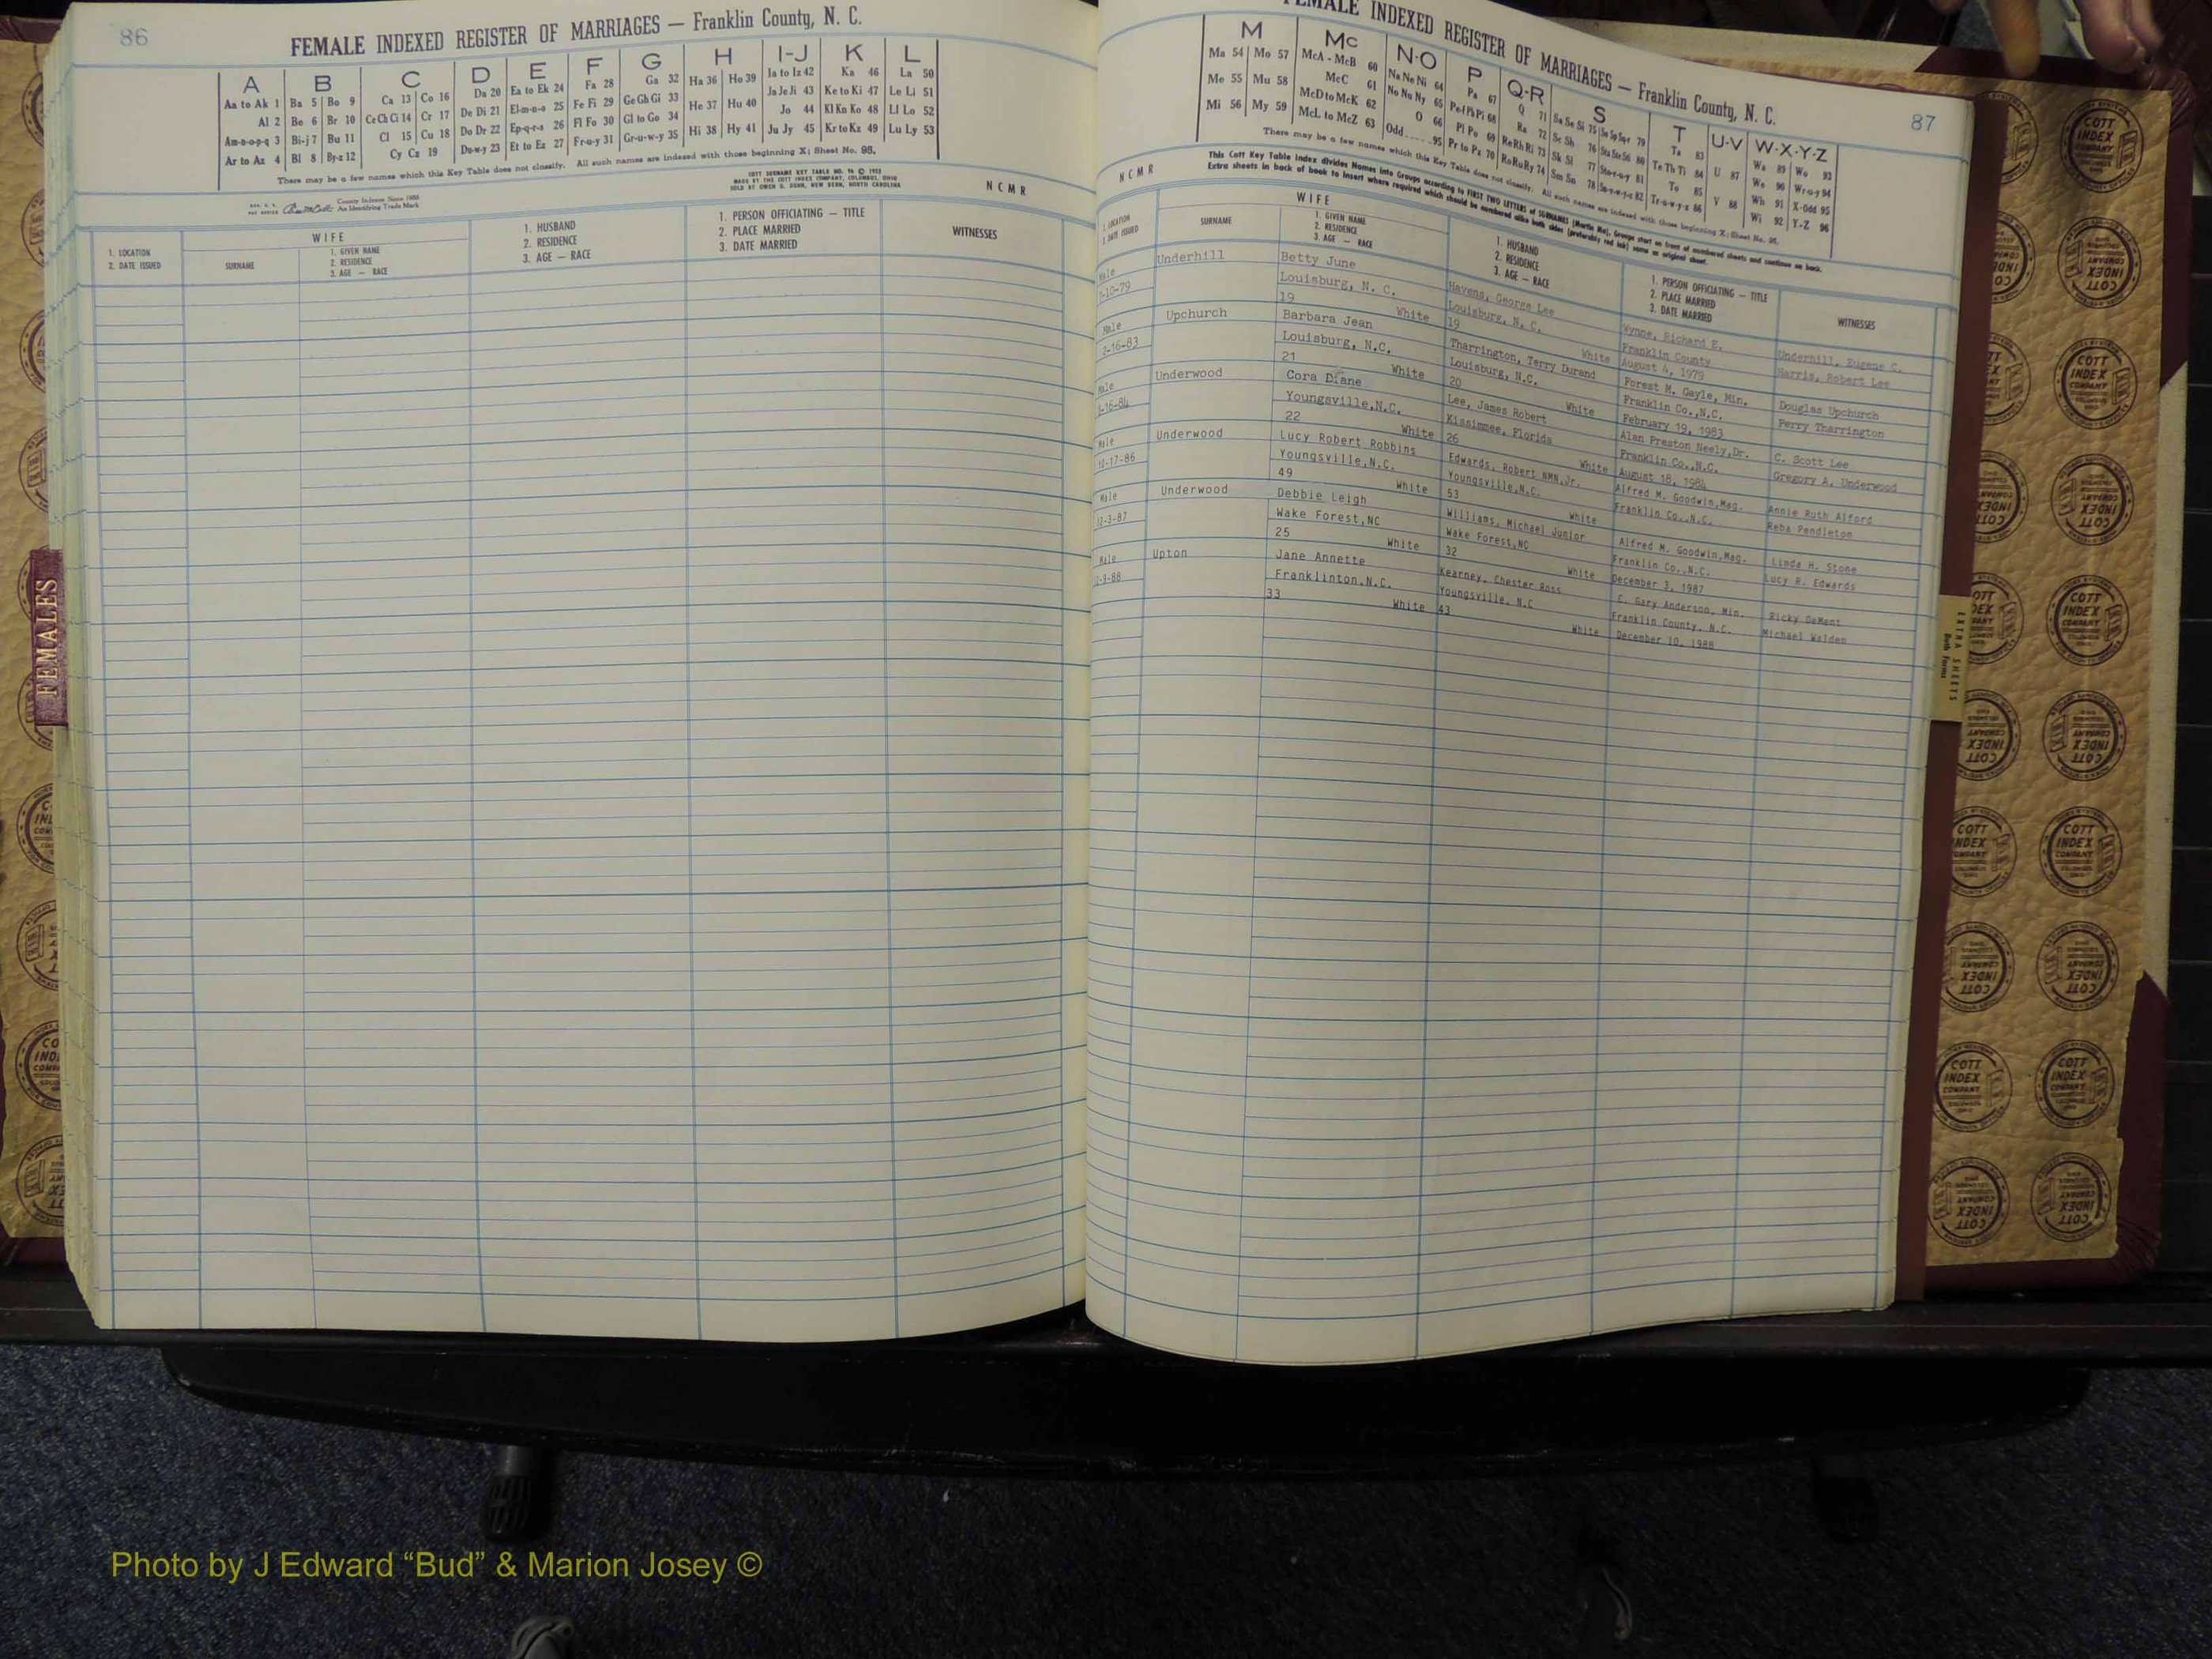 86
FEMALE INDEXED REGISTER OF MARRIAGES — Franklin County, N. C.
A B C D E F G H I-J K L
Aa to Ak 1 Ba 5 Bo 9 Ca 13 Co 16 Da 20 Ea to Ek 24 Fa 28 Ga 32 Ha 36 Ho 39 Ia to Iz 42 Ka 46 La 50
Al 2 Be 6 Br 10 Ce Ch Ci 14 Cr 17 De Di 21 El-m-n-o 25 Fe Fi 29 Ge Gh Gi 33 He 37 Hu 40 Ja Je Ji 43 Ke to Ki 47 Le Li 51
Am-n-o-p-q 3 Bi-j 7 Bu 11 Cl 15 Cu 18 Do Dr 22 Ep-q-r-s 26 Fl Fo 30 Gl to Go 34 Hi 38 Hy 41 Jo 44 Kl Kn Ko 48 Ll Lo 52
Ar to Az 4 Bl 8 By-z 12 Cy Cz 19 Du-w-y 23 Et to Ez 27 Fr-u-y 31 Gr-u-w-y 35 Ju Jy 45 Kr to Kz 49 Lu Ly 53
There may be a few names which this Key Table does not classify. All such names are indexed with those beginning X; Sheet No. 95.
COTT SURNAME KEY TABLE NO. 96 © 1952
MADE BY THE COTT INDEX COMPANY, COLUMBUS, OHIO
SOLD BY OWEN G. DUNN, NEW BERN, NORTH CAROLINA
N C M R
County Indexes Since 1888
An Identifying Trade Mark
1. LOCATION
2. DATE ISSUED
WIFE
SURNAME
1. GIVEN NAME
2. RESIDENCE
3. AGE — RACE
1. HUSBAND
2. RESIDENCE
3. AGE — RACE
1. PERSON OFFICIATING — TITLE
2. PLACE MARRIED
3. DATE MARRIED
WITNESSES
FEMALES
FEMALE INDEXED REGISTER OF MARRIAGES — Franklin County, N. C.
87
M Mc N-O P Q-R S T U-V W-X-Y-Z
Ma 54 Mo 57 McA - McB 60 Na Ne Ni 64 Pa 67 Q 71 Sa Se Si 75 Ta 83 U 87 Wa 89 Wo 93
Me 55 Mu 58 McC 61 No Nu Ny 65 Pe-f Ph Pi 68 Ra 72 Sc Sh 76 Te Th Ti 84 V 88 We 90 Wr-u-y 94
Mi 56 My 59 McD to McK 62 O 66 Pl Po 69 Re Rh Ri 73 Sk Sl 77 Sto-r-u-y 81 To 85 Wh 91 X-Odd 95
McL to McZ 63 Odd 95 Pr to Pz 70 Ro Ru Ry 74 Sm Sn 78 Tr-u-w-y-z 86 Wi 92 Y-Z 96
There may be a few names which this Key Table does not classify. All such names are indexed with those beginning X; Sheet No. 95.
This Cott Key Table Index divides Names into Groups according to FIRST TWO LETTERS of SURNAMES (Martin Ma). Groups start on front of numbered sheets and continue on back.
Extra sheets in back of book to insert where required which should be numbered alike both sides (preferably red ink) same as original sheet.
N C M R
LOCATION
DATE ISSUED
WIFE
SURNAME
1. GIVEN NAME
2. RESIDENCE
3. AGE — RACE
1. HUSBAND
2. RESIDENCE
3. AGE — RACE
1. PERSON OFFICIATING — TITLE
2. PLACE MARRIED
3. DATE MARRIED
WITNESSES
Male Underhill Betty June Havens, George Lee Wynne, Richard E. Underhill, Eugene C.
-10-79 Louisburg, N. C. Louisburg, N. C. Franklin County Harris, Robert Lee
19 White 19 White August 4, 1979
Male Upchurch Barbara Jean Tharrington, Terry Durand Forest M. Gayle, Min. Douglas Upchurch
2-16-83 Louisburg, N.C. Louisburg, N.C. Franklin Co.,N.C. Perry Tharrington
21 White 20 White February 19, 1983
Male Underwood Cora Diane Lee, James Robert Alan Preston Neely,Dr. C. Scott Lee
8-16-84 Youngsville,N.C. Kissimmee, Florida Franklin Co.,N.C. Gregory A. Underwood
22 White 26 White August 18, 1984
Male Underwood Lucy Robert Robbins Edwards, Robert NMN,Jr. Alfred M. Goodwin,Mag. Annie Ruth Alford
10-17-86 Youngsville,N.C. Youngsville,N.C. Franklin Co.,N.C. Reba Pendleton
49 White 53 White
Male Underwood Debbie Leigh Williams, Michael Junior Alfred M. Goodwin,Mag. Linda H. Stone
12-3-87 Wake Forest,NC Wake Forest,NC Franklin Co.,N.C. Lucy R. Edwards
25 White 32 White December 3, 1987
Male Upton Jane Annette Kearney, Chester Ross C. Gary Anderson, Min. Ricky DeMent
-9-88 Franklinton,N.C. Youngsville, N.C Franklin County, N.C. Michael Walden
33 White 43 White December 10, 1988
EXTRA SHEETS
COTT
INDEX
COMPANY
Photo by J Edward “Bud” & Marion Josey ©